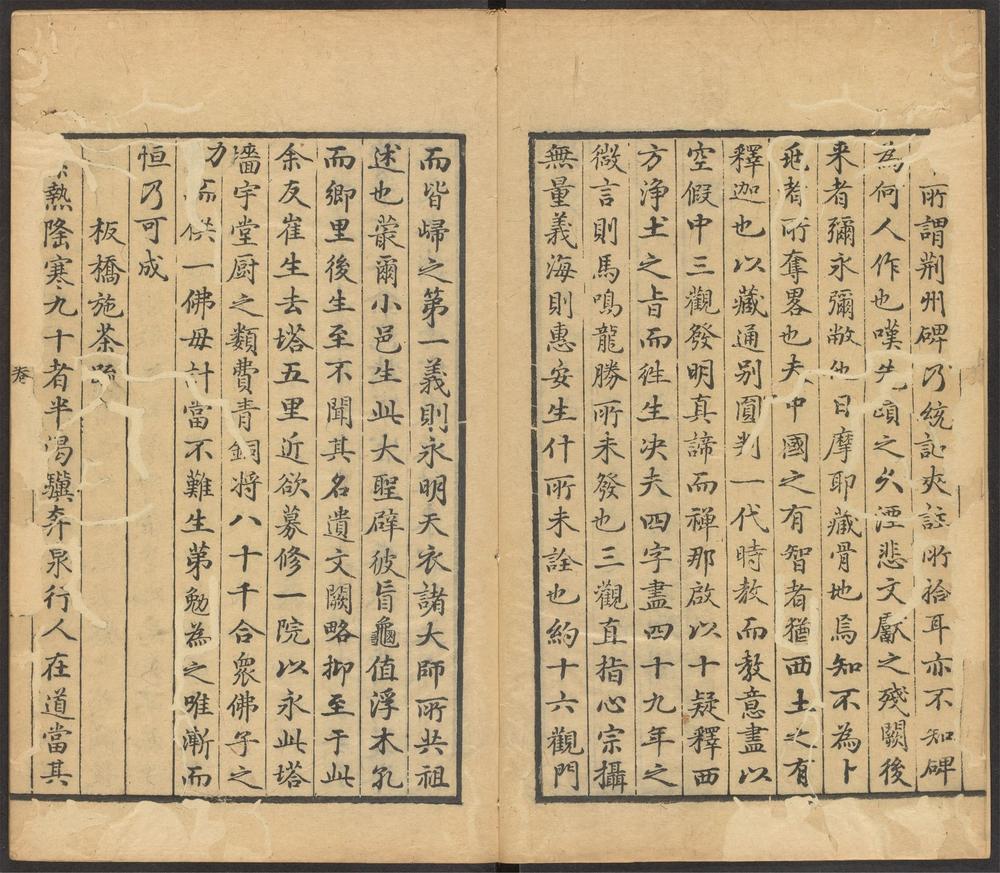 所謂荆州碑乃統記夾註所拾耳亦不知碑
為何人作也嘆先頭之久湮悲文獻之殘闕後
来者彌永彌敝他日摩耶藏骨地焉知不為卜
兆者所奪畧也夫中國之有智者猶西土之有
釋迦也以藏通别圓判一代時教而教意盡以
空假中三觀發明真諦而禅那啟以十疑釋西
方浄土之㫖而徃生决夫四字盡四十九年之
微言則馬鳴龍勝所未發也三觀直指心宗攝
無量義海則惠安生什所未詮也約十六觀門
而皆歸之第一義則永明天衣諸大師所共祖
述也蕞爾小邑生此大聖辟彼盲龜值浮木孔
而鄉里後生至不聞其名遺文闕略抑至于此
余友崔生去塔五里近欲募修一院以永此塔
墻宇堂厨之類費青銅将八十千合衆佛子之
力而供一佛母計當不難生第勉為之唯漸而
恒乃可成
板橋施茶疏
熱隆寒九十者半渴驥奔泉行人在道當其
卷